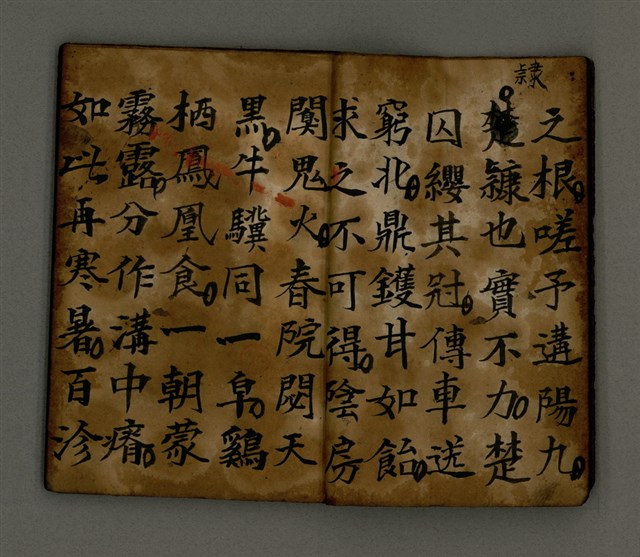 之根嗟予遘陽九
隸
楚也實不力楚
囚纓其冠傳車送
窮北鼎鑊甘如飴
求之不可得陰房
闃鬼火春院閟天
黑牛驥同一皁鷄
栖鳳凰食一朝蒙
霧露分作溝中瘠
如此再寒暑百沴